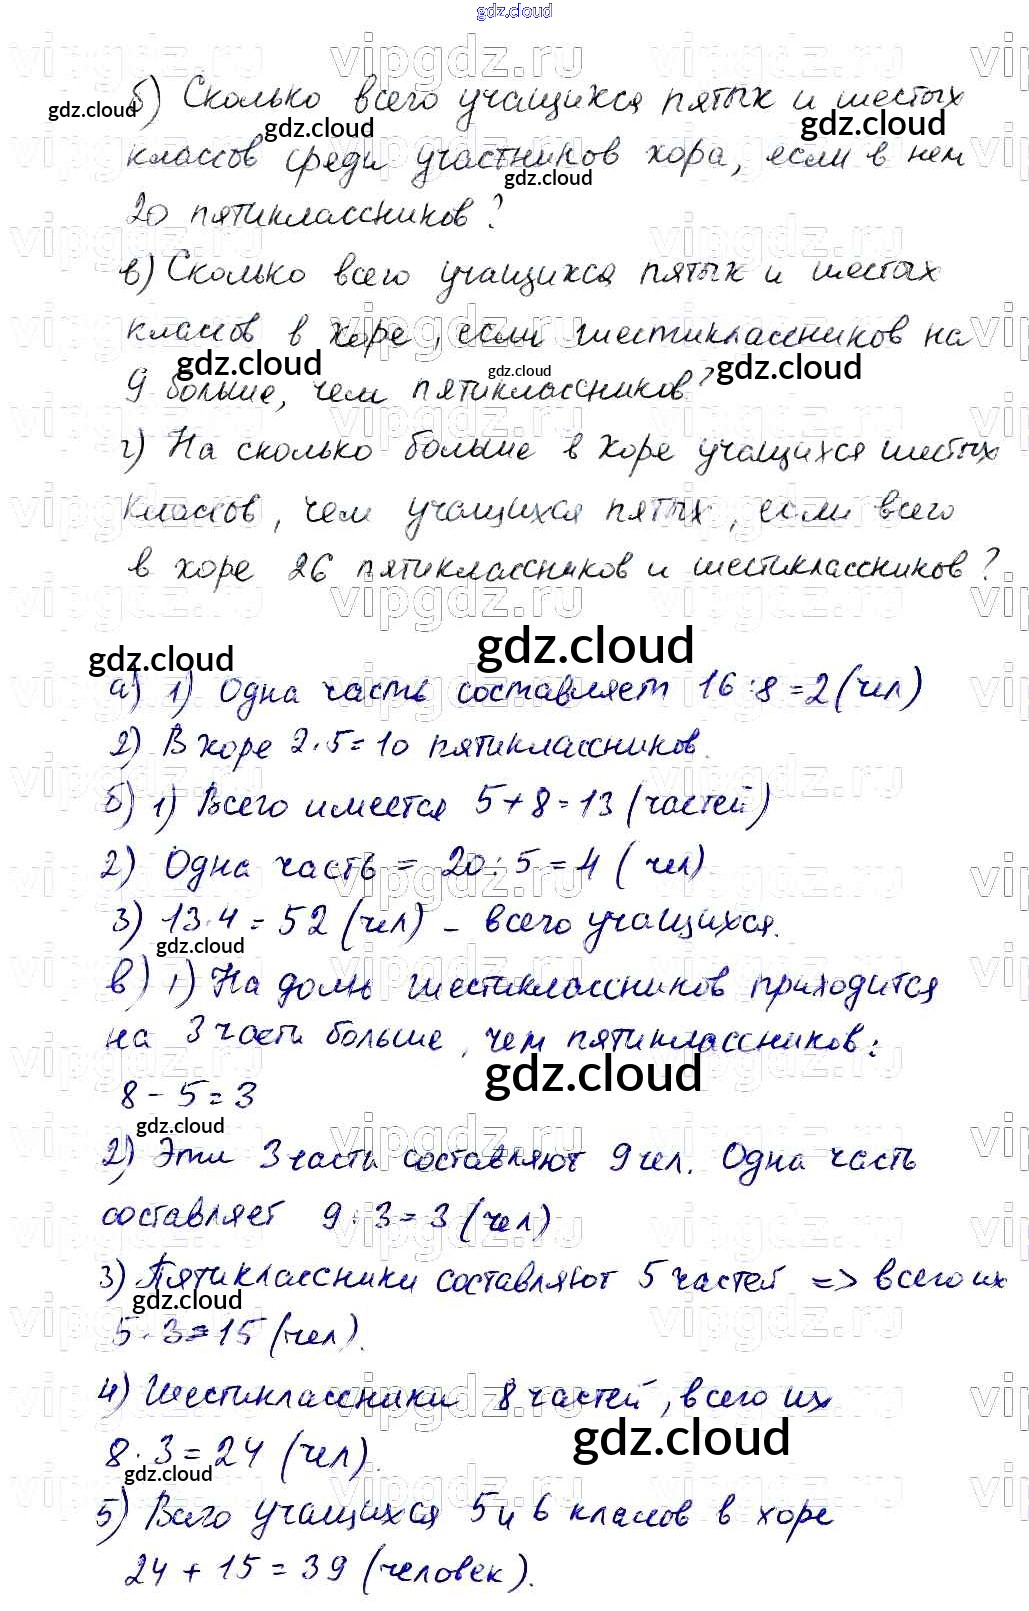 gdz.cloud
б) Сколько всего учащихся пятых и шестых
классов среди участников хора, если в нем
20 пятиклассников?
в) Сколько всего учащихся пятых и шестых
классов в хоре, если шестиклассников на
9 больше, чем пятиклассников?
г) На сколько больше в хоре учащихся шестых
классов, чем учащихся пятых, если всего
в хоре 26 пятиклассников и шестиклассников?
а) 1) Одна часть составляет 16:8=2 (чел)
2) В хоре 2·5=10 пятиклассников.
б) 1) Всего имеется 5+8=13 (частей)
2) Одна часть = 20:5=4 (чел)
3) 13·4=52 (чел) - всего учащихся.
в) 1) На долю шестиклассников приходится
на 3 части больше, чем пятиклассников:
8-5=3
2) Эти 3 части составляют 9 чел. Одна часть
составляет 9:3=3 (чел)
3) Пятиклассники составляют 5 частей => всего их
5·3=15 (чел).
4) Шестиклассники 8 частей, всего их
8·3=24 (чел).
5) Всего учащихся 5 и 6 класов в хоре
24+15=39 (человек).